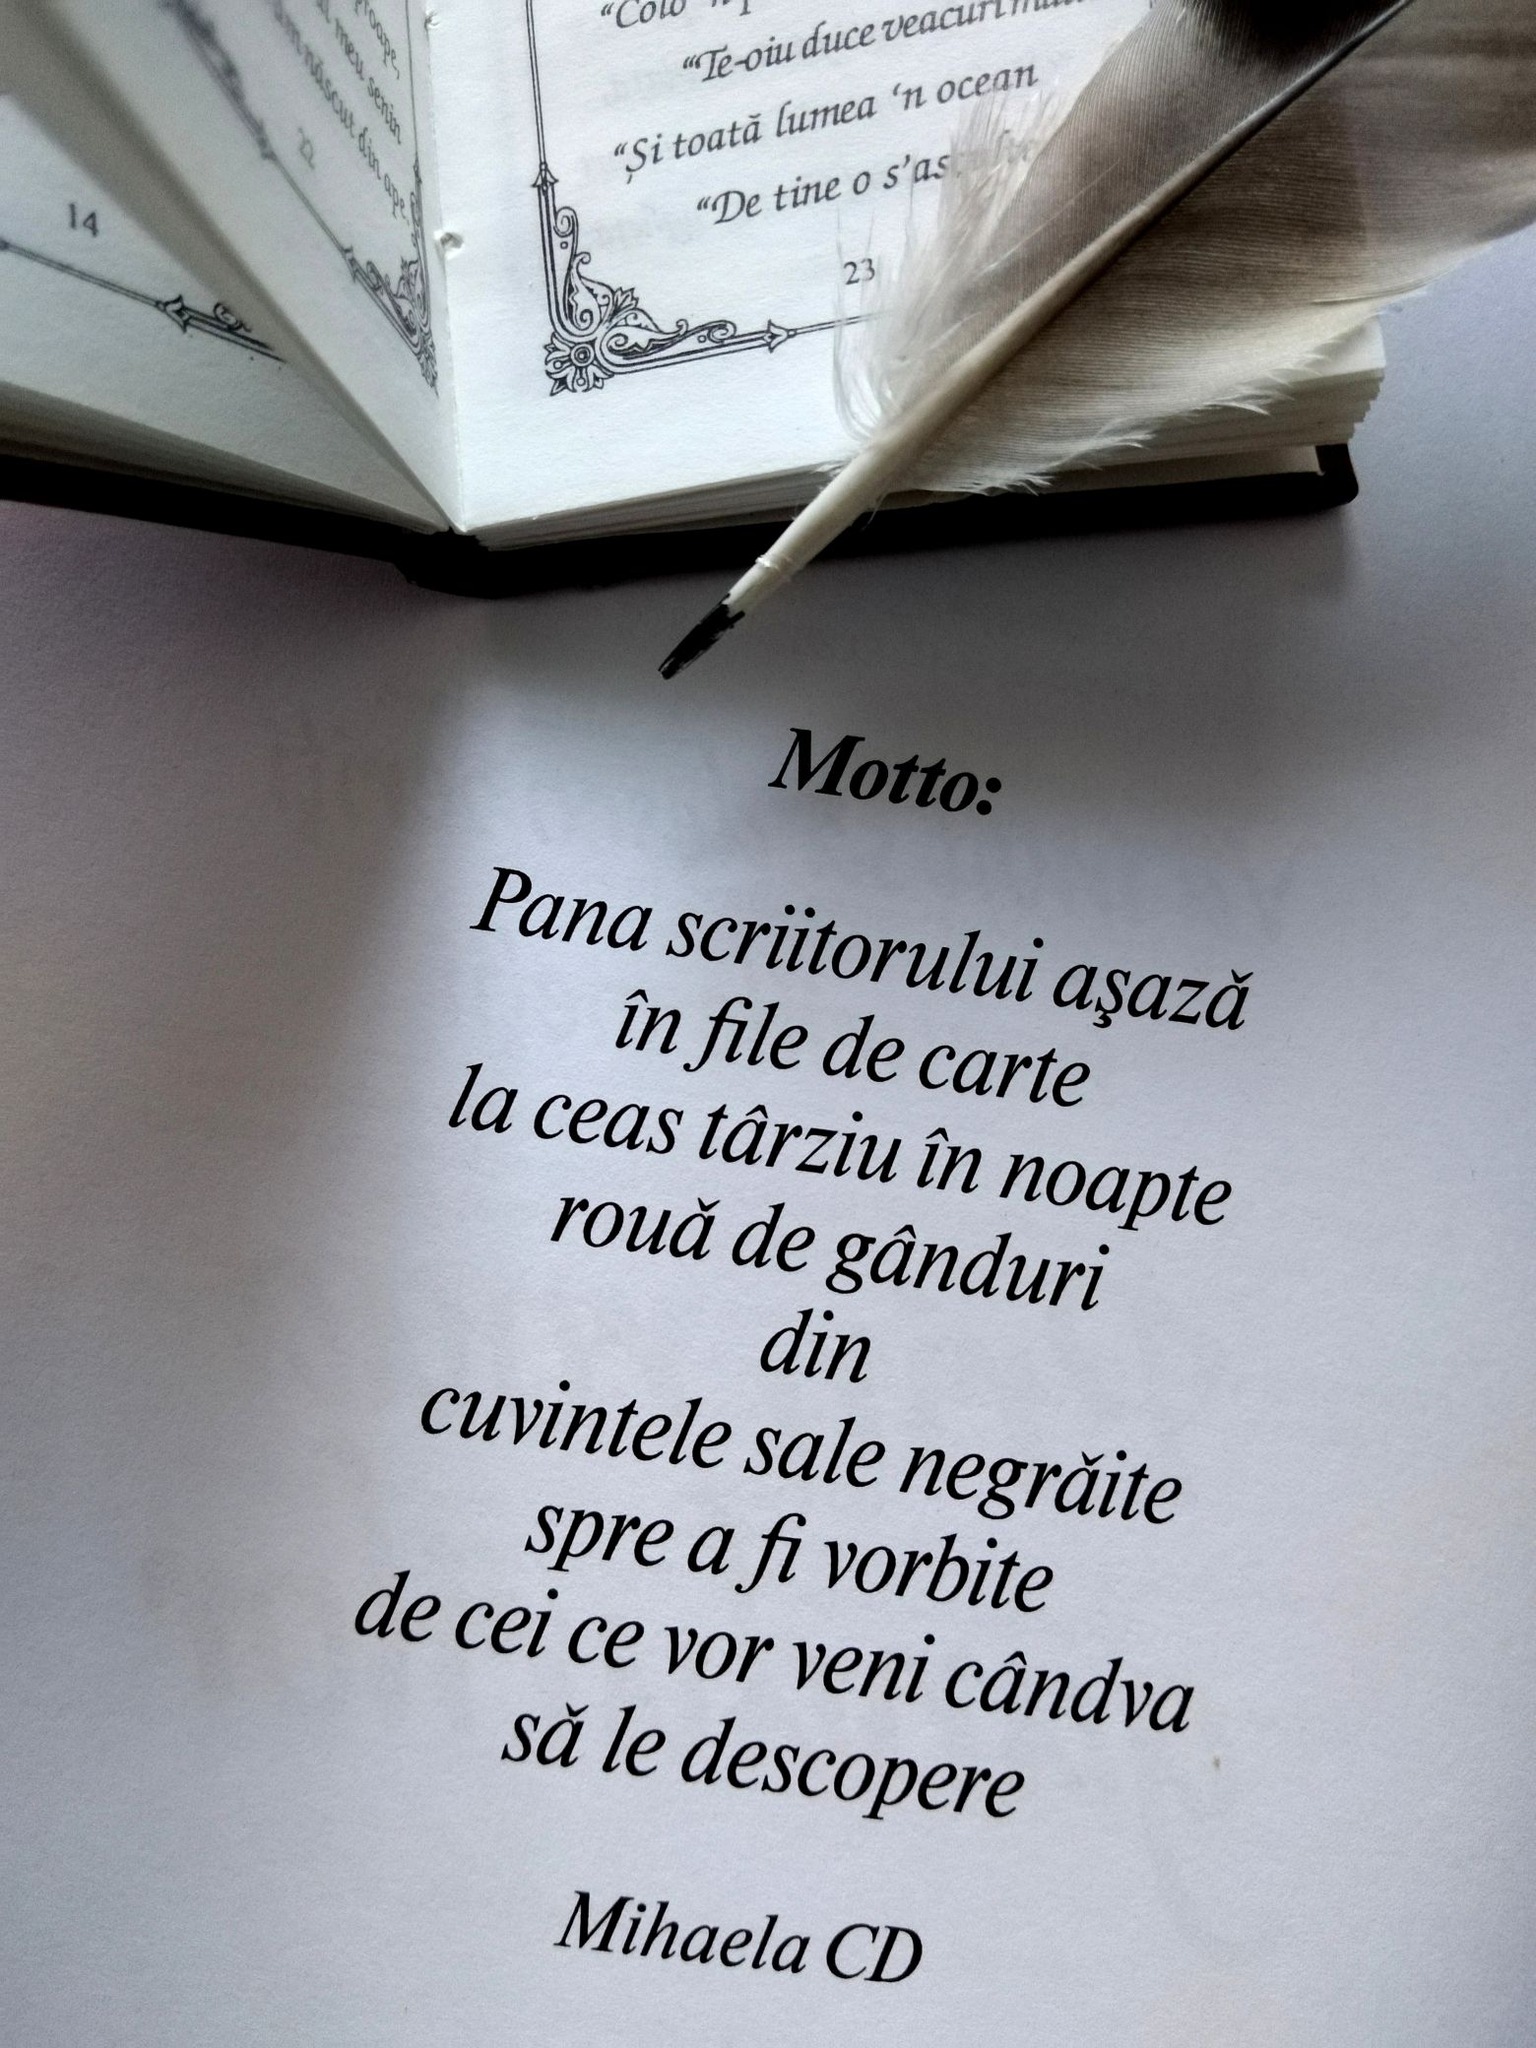 proape,
meu senin
născut din ape.
22
14
"Colo
"Te-oiu duce veacuri
"Și toată lumea 'n ocean
"De tine o s'as
23
Motto:
Pana scriitorului aşază
în file de carte
la ceas târziu în noapte
rouă de gânduri
din
cuvintele sale negrăite
spre a fi vorbite
de cei ce vor veni cândva
să le descopere
Mihaela CD